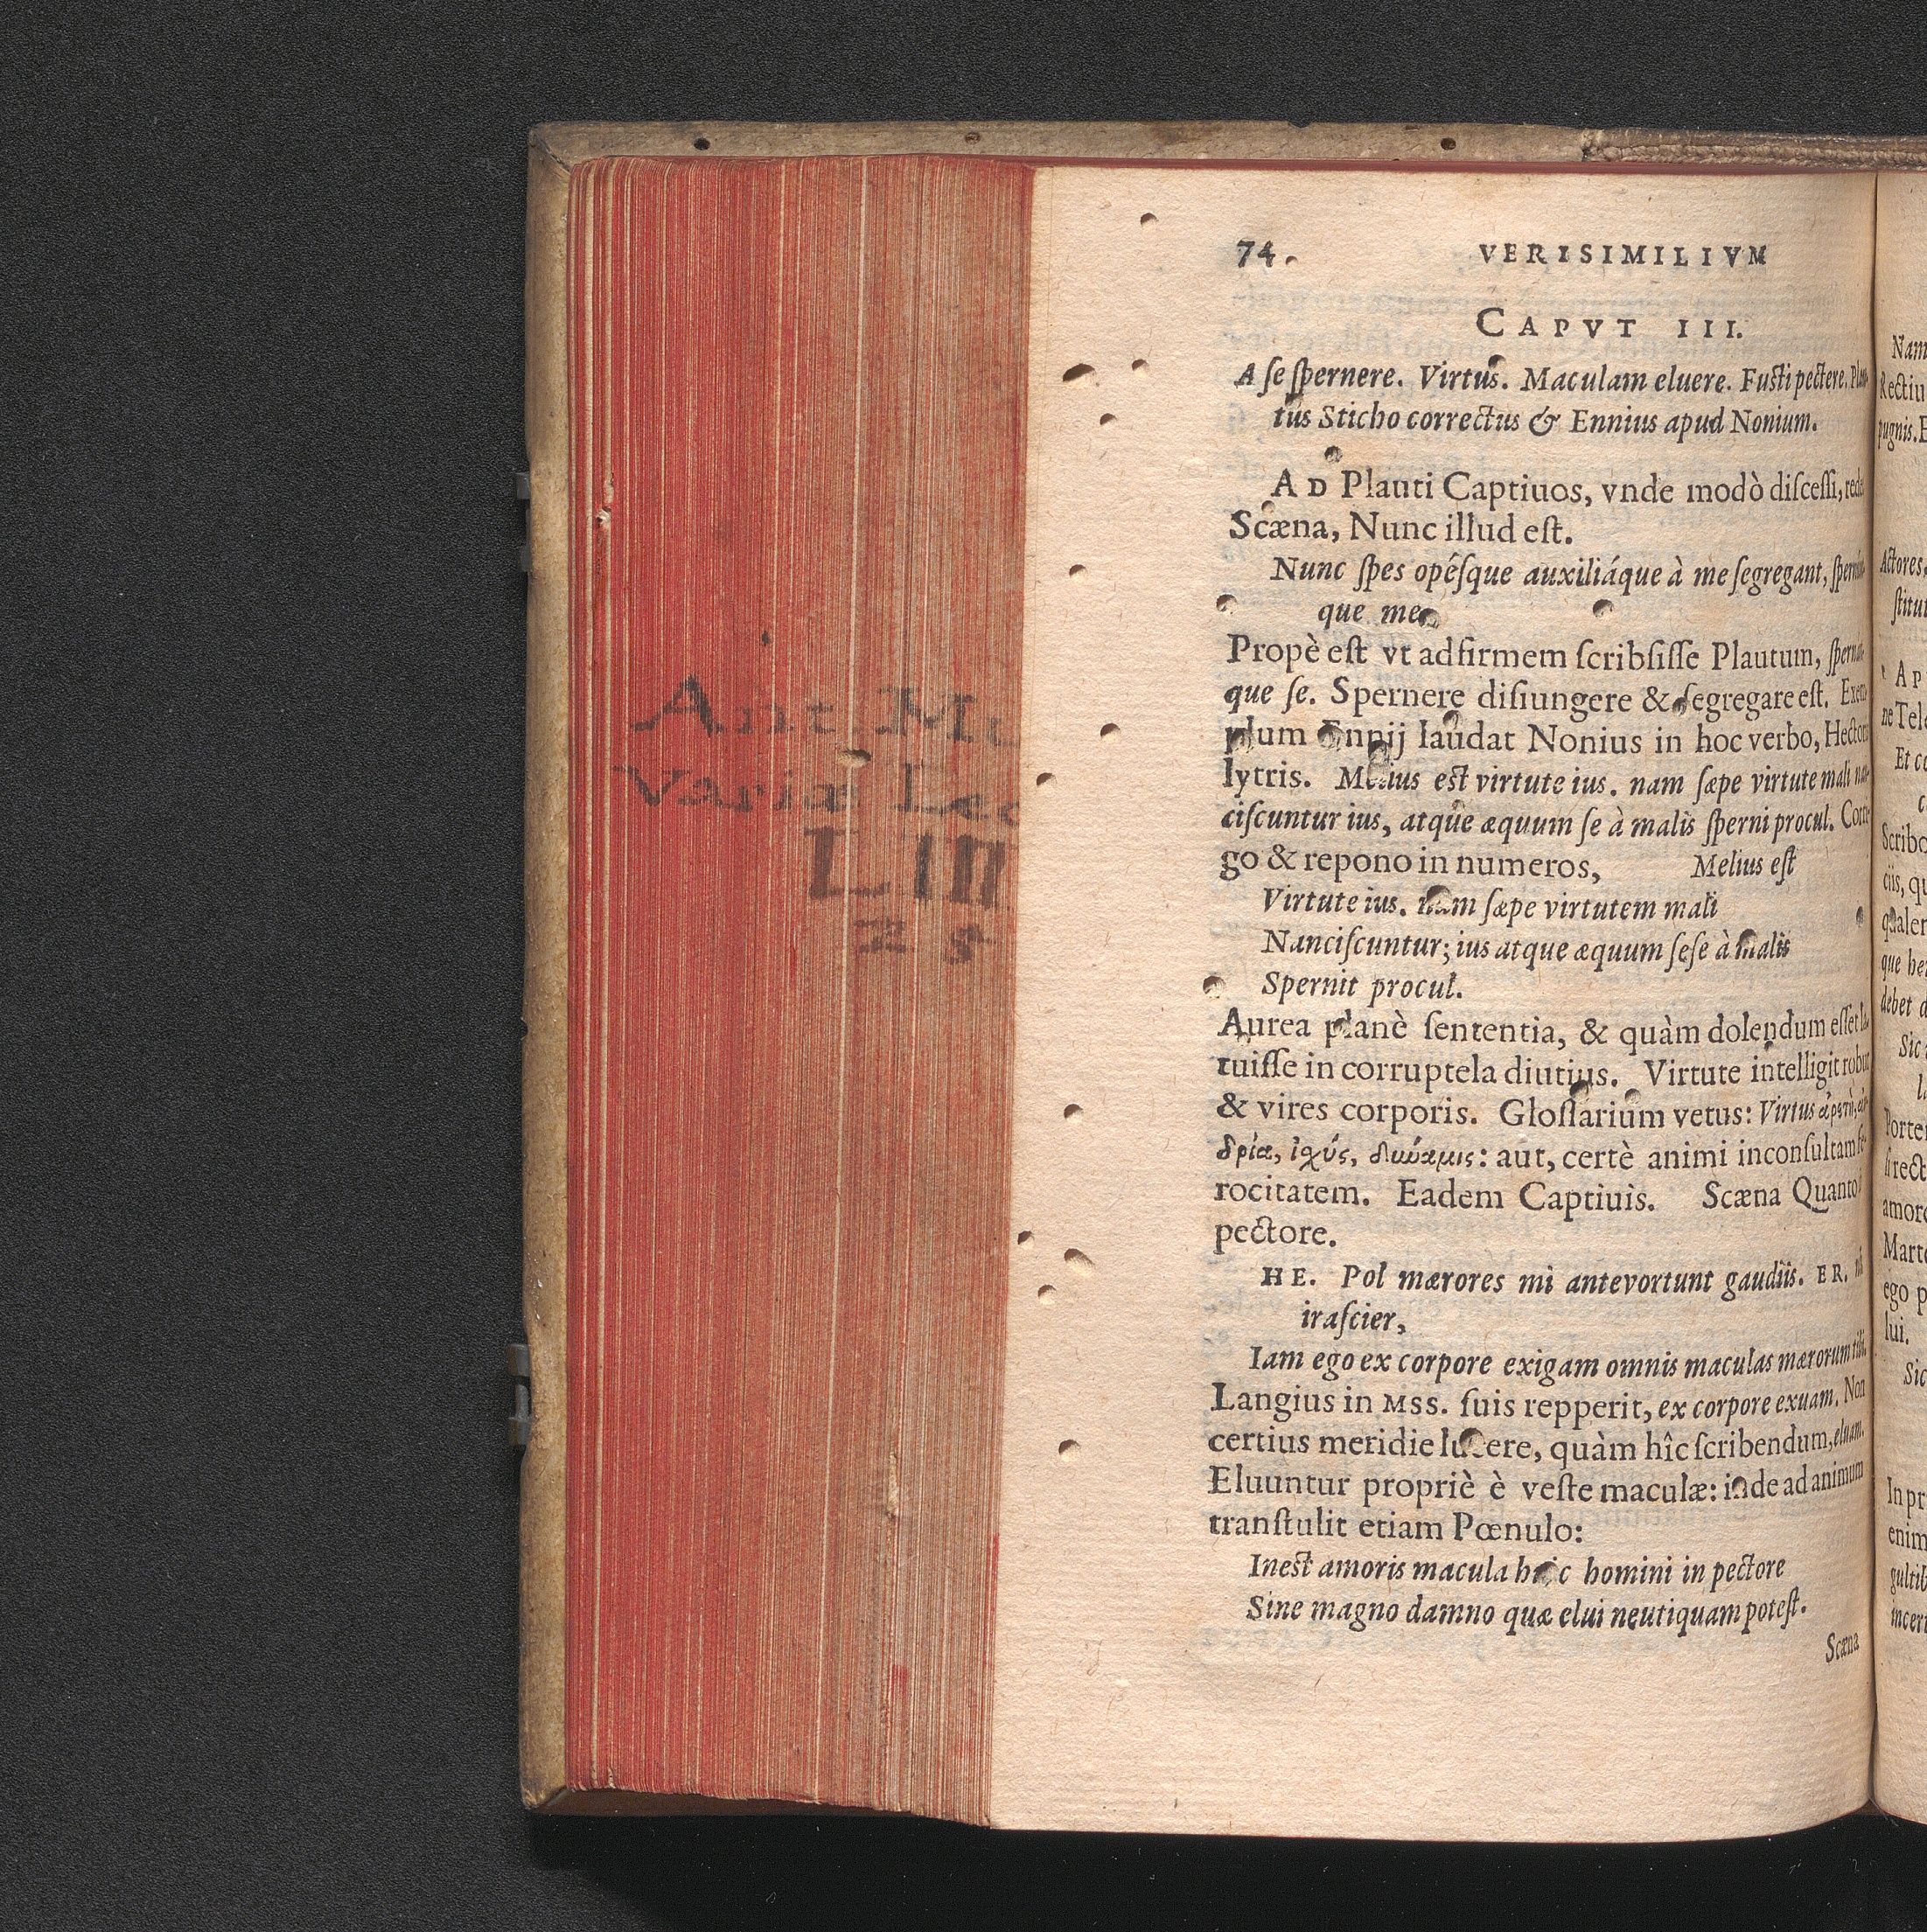 Ant
Variæ Lec
L III
74.
VERISIMILIVM
CAPVT III.
A ſe ſpernere. Virtus. Maculam eluere. Fuſti pectere. Plau-
tus Sticho correctus & Ennius apud Nonium.
AD Plauti Captiuos, vnde modò diſceſſi,
Scæna, Nunc illud eſt.
Nunc ſpes opéſque auxiliáque à me ſegregant,
que me
Propè eſt vt adfirmem ſcribſiſſe Plautum,
que ſe. Spernere diſiungere & ſegregare eſt. Exem-
plum Ennij laudat Nonius in hoc verbo, Hectoris
lytris. Melius eſt virtute ius. nam ſæpe virtute mali nan-
ciſcuntur ius, atque æquum ſe à malis ſperni procul. Corri-
go & repono in numeros, Melius eſt
Virtute ius. nam ſæpe virtutem mali
Nanciſcuntur; ius atque æquum ſeſe à malis
Spernit procul.
Aurea planè ſententia, & quàm dolendum eſſet la-
tuiſſe in corruptela diutius. Virtute intelligit robur
& vires corporis. Gloſſarium vetus: Virtus ἀρετὴ, ἀν-
δρία, ἰχύς, δυύαμις: aut, certè animi inconſultam fe-
rocitatem. Eadem Captiuis. Scæna Quanto
pectore.
HE. Pol mærores mi antevortunt gaudiis. ER.
iraſcier,
Iam ego ex corpore exigam omnis maculas mærorum tibi.
Langius in MSS. ſuis repperit, ex corpore exuam. Non
certius meridie lucere, quàm hîc ſcribendum, eluam.
Eluuntur propriè è veſte maculæ: inde ad animum
tranſtulit etiam Pœnulo:
Ineſt amoris macula huic homini in pectore
Sine magno damno quæ elui neutiquam poteſt.
Scæna